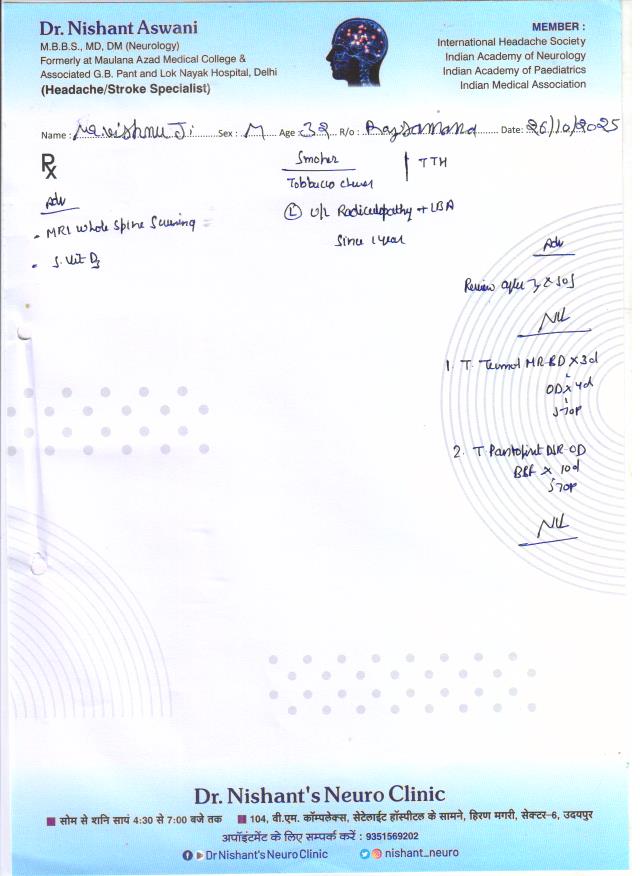 Dr. Nishant Aswani
M.B.B.S., MD, DM (Neurology)
Formerly at Maulana Azad Medical College &
Associated G.B. Pant and Lok Nayak Hospital, Delhi
(Headache/Stroke Specialist)
MEMBER :
International Headache Society
Indian Academy of Neurology
Indian Academy of Paediatrics
Indian Medical Association
Name : Ji Sex : M Age : 32 R/o : Date: 26/10/2025
Rx
Smoker
TTH
Tobbacco
Adv
(L) U/L Radiculopathy + LBA
- MRI whole Spine Screening
Since 1 year
- S. Vit D3
Adv
Review after SOS
1. T. MR BD x 3d
OD x 4d
STOP
2. T. DSR OD
BBF x 10d
STOP
Dr. Nishant's Neuro Clinic
सोम से शनि सायं 4:30 से 7:00 बजे तक 104, वी.एम. कॉम्पलेक्स, सेटेलाईट हॉस्पीटल के सामने, हिरण मगरी, सेक्टर-6, उदयपुर
अपॉइंटमेंट के लिए सम्पर्क करें : 9351569202
Dr Nishant's Neuro Clinic nishant_neuro